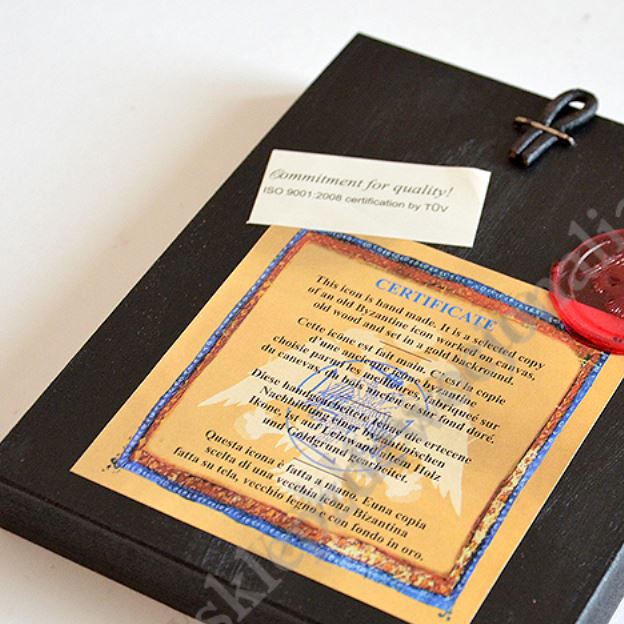 Commitment for quality!
ISO 9001:2008 certification by TÜV
CERTIFICATE
This icon is hand made. It is a selected copy
of an old Byzantine icon worked on canvas,
old wood and set in a gold backround.
Cette icone est fait main. C'est la copie
d'une ancienne icone byzantine
choisie parmi les meilleures, fabriquée sur
du canevas, du bois vieĩnts, sur fond doré.
Diese handgearbeitete Ikone, die ertecene
Nachbildung einer Byzandinischen
Ikone, ist auf Leinwand altem Holz
und Goldgrund gearbeitet.
Questa icona è fatta a mano. Euna copia
scelta di una vecchia icona Bizantina
fatta su tela, vecchio legno e con fondo in oro.